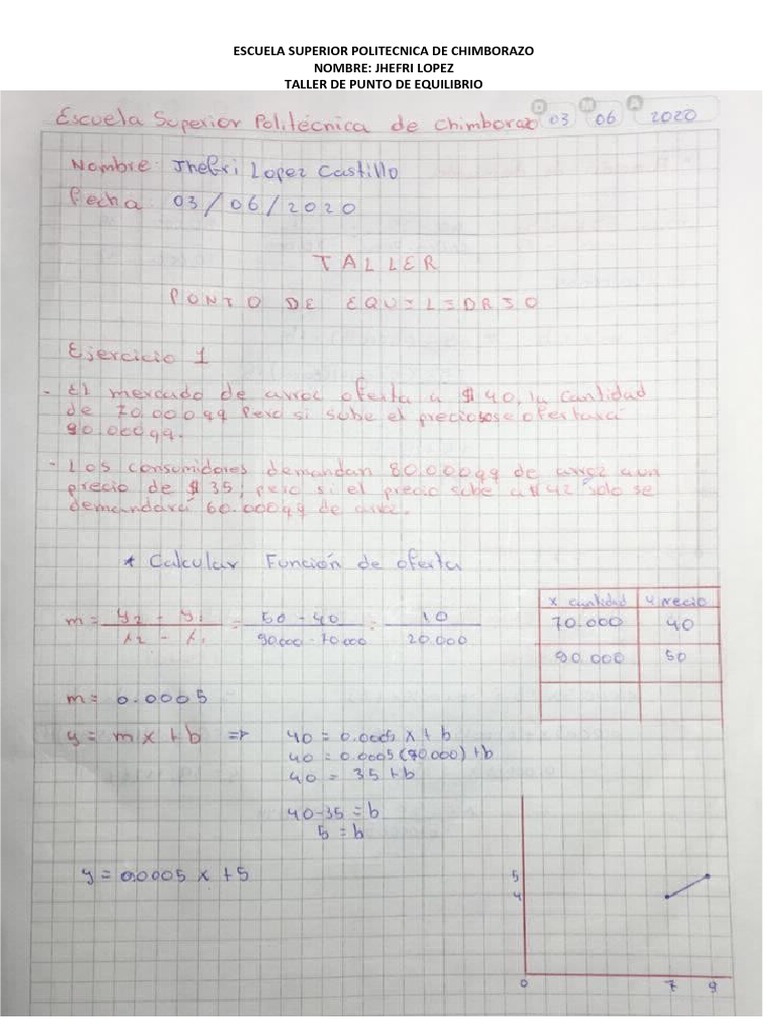 ESCUELA SUPERIOR POLITECNICA DE CHIMBORAZO
NOMBRE: JHEFRI LOPEZ
TALLER DE PUNTO DE EQUILIBRIO
D M A
Escuela Superior Politécnica de Chimborazo 03 06 2020
Nombre: Jhefri Lopez Castillo
Fecha 03/06/2020
TALLER
PUNTO DE EQUILIBRIO
Ejercicio 1
- El mercado de arroz oferta a $40, la cantidad
de 70.000qq pero si sube el precio se ofertará
90.000qq.
- Los consumidores demandan 80.000qq de arroz a un
precio de $35; pero si el precio sube a $42 solo se
demandará 60.000qq de arroz.
* Calcular Función de oferta
x cantidad y precio
70.000 40
90.000 50
m = y2 - y1 / x2 - x1 = 50 - 40 / 90.000 - 70.000 = 10 / 20.000
m = 0.0005
y = mx + b => 40 = 0.0005 x + b
40 = 0.0005 (70.000) + b
40 = 35 + b
40-35 = b
5 = b
y = 0.0005 x + 5
5
4
0 7 9